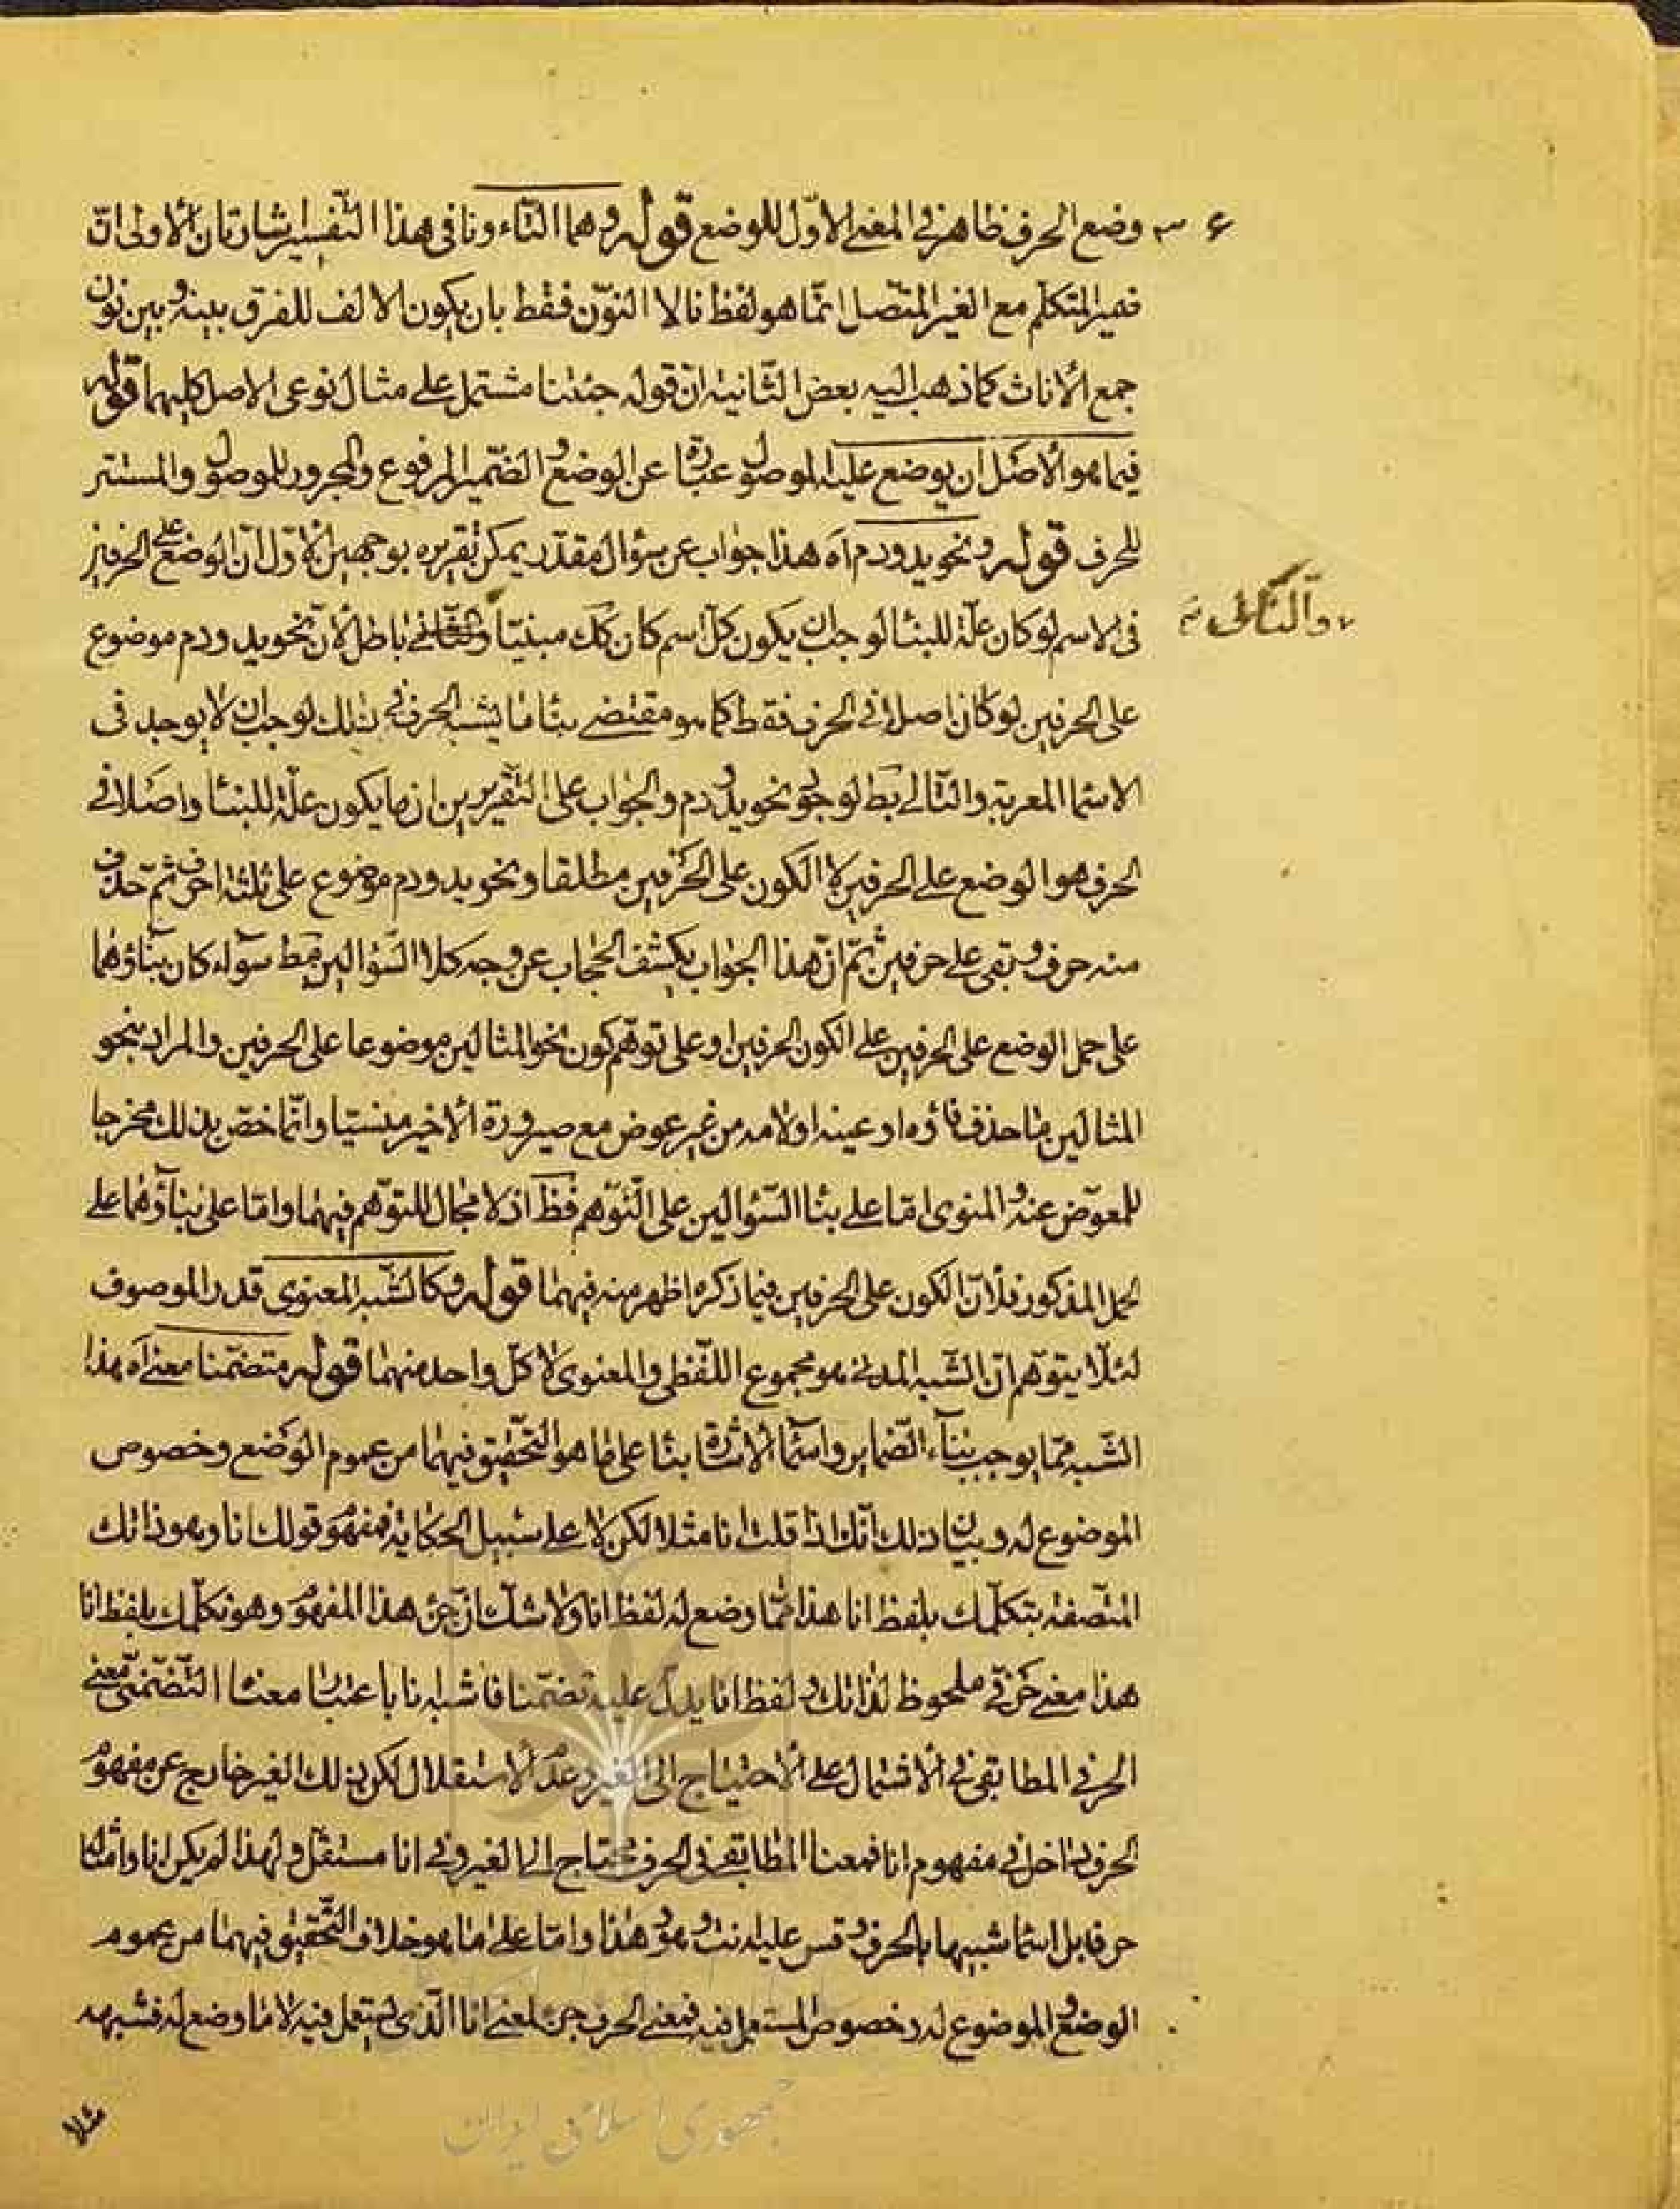 وضع الحرف ظاهر فى المعنى الاوّل للوضع قوله وهما التاء ونا فى هذا التفسير اشارتان الاولى انّ
ضمير المتكلّم مع الغير المتصل انّما هو لفظ نا لا النوّن فقط بان يكون الالف للفرق بينه وبين نون
جمع الأناث كما ذهب اليه بعض الثّانية ان قوله جئتنا مشتمل على مثال نوعى الاصل كليهما قوله
فيما هو الأصل ان يوضع عليه الموصول عبارة عن الوضع والضّمير المرفوع والمجرور للموصول والمستتر
للحرف قوله ونحو يد ودم آه هذا جواب عن سؤال مقدّر يمكن تقريره بوجهين الاوّل انّ الوضع على الحرفين
فى الاسم لو كان علّة للبنا لوجب ان يكون كلّ اسم كان كك مبنيّا باطل لأنّ نحو يد ودم موضوع
والثانى
على الحرفين لو كان اصلا فى الحرف فقط كما هو مقتضى بنا ما يشبه الحرف فى ذلك لوجب ان لا يوجد فى
الاسما المعربة والتّالى بط لوجود نحو يد ودم والجواب على التقريرين ان ما يكون علّة للبنا واصلا فى
الحرف هو الوضع على الحرفين لا الكون على الحرفين مطلقا ونحو يد ودم موضوع على ثلثة احرف ثم حذف
منه حرف وبقى على حرفين ثمّ انّ هذا الجواب يكشف الحجاب عن وجه كلا السّؤالين فقط سوآء كان بنآؤهما
على حمل الوضع على الحرفين على الكون الحرفين او على توهّم كون نحو المثالين موضوعا على الحرفين والمراد بنحو
المثالين ما حذف فاؤه او عينه او لامه من غير عوض مع صيرورة الأخير منسيّا وانّما خصّ بذلك مخرجا
للمعوّض عنه والمنوى امّا على بنا السّؤالين على التّوهم فظ اذ لا مجال للتوّهم فيهما وامّا على بنآؤهما على
الحمل المذكور فلأنّ الكون على الحرفين فيما ذكره اظهر منه فيهما قوله وكالشّبه المعنوى قدر الموصوف
لئلّا يتوّهم انّ الشّبه المدنى هو مجموع اللّفظى والمعنوى لا كلّ واحد منهما قوله متضمّنا معنى آه هذا
الشّبه ممّا يوجب بنآء الضّماير واسمآ الاشارة بنا على ما هو التّحقيق فيهما من عموم الوضع وخصوص
الموضوع له وبيان ذلك انّك اذا قلت انا مثلا لكن لا على سبيل الحكاية فمفهوم قولك انا وهو ذاتك
المتّصفة بتكلّمك بلفظ انا هذا ممّا وضع له لفظ انا ولا شك انّ جزء هذا المفهوم وهو تكلّمك بلفظ انا
هذا معنى حرفىّ ملحوظ لذاتك ولفظ انا يدلّ عليه تضمّنا فاشبه انا باعتبار معناه التّضمّنىّ معنى
الحرف المطابقى فى الأشتمال على الأحتياج الى الغير وعدم الأستقلال لكن ذلك الغير خارج عن مفهوم
الحرف داخل فى مفهوم انا فمعناه المطابقى فى الحرف محتاج الى الغير وفى انا مستقلّ ولهذا لم يكن انا وامثاله
حرفا بل اسما شبيها بالحرف وقس عليه انت وهو وهذا وامّا على ما هو خلاف التّحقيق فيهما من عموم
الوضع والموضوع له وخصوص المستعمل فيه فمعنى الحرف جزء لمعنى انا الّذى يستعمل فيه لا ما وضع له فشبهه
مثلا
جمهورى اسلامى ايران